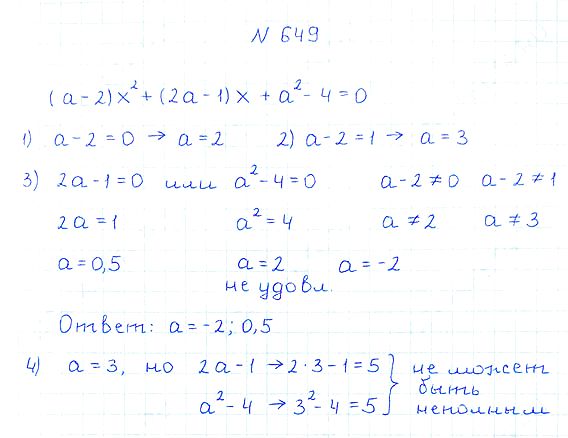 N 649
(a-2)x² + (2a-1)x + a² - 4 = 0
1) a-2=0 → a=2 2) a-2=1 → a=3
3) 2a-1=0 или a²-4=0 a-2≠0 a-2≠1
2a=1 a²=4 a≠2 a≠3
a=0,5 a=2 a=-2
не удовл.
Ответ: a=-2; 0,5
4) a=3, но 2a-1 → 2·3-1=5 } не может
быть
a²-4 → 3²-4=5 неполным